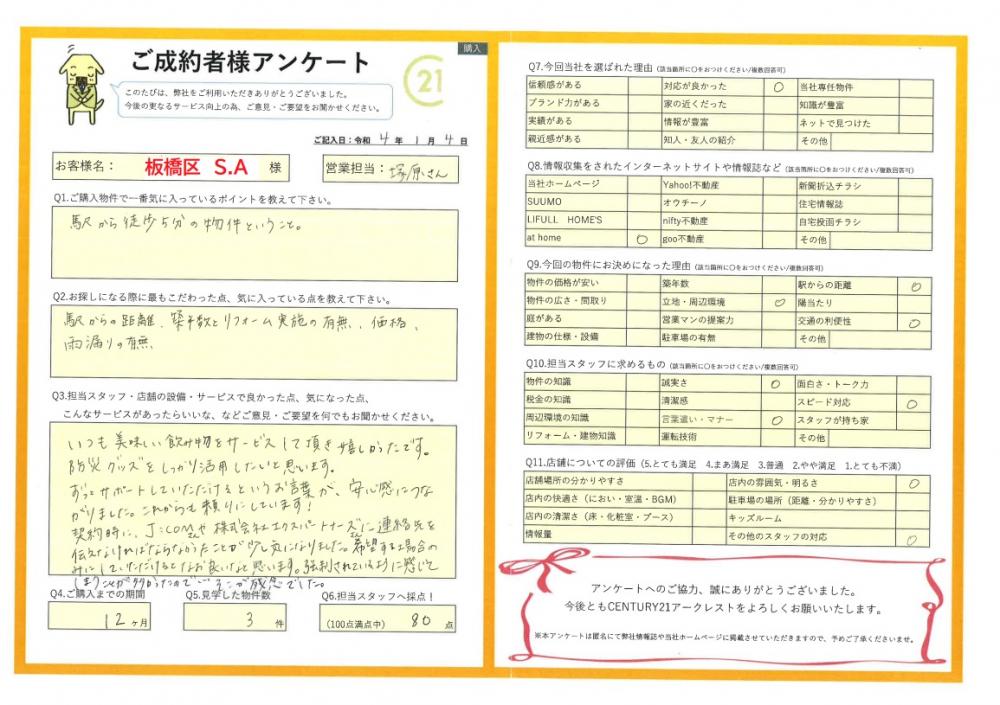 購入
ご成約者様アンケート
21
このたびは、弊社をご利用いただきありがとうございました。
今後の更なるサービス向上の為、ご意見・ご要望をお聞かせください。
ご記入日：令和 4 年 1 月 4 日
お客様名： 板橋区 S.A 様
営業担当：塚原さん
Q1.ご購入物件で一番気に入っているポイントを教えて下さい。
駅から徒歩5分の物件ということ。
Q2.お探しになる際に最もこだわった点、気に入っている点を教えて下さい。
駅からの距離、築年数とリフォーム実施の有無、価格、
雨漏りの有無
Q3.担当スタッフ・店舗の設備・サービスで良かった点、気になった点、
こんなサービスがあったらいいな、などご意見・ご要望を何でもお聞かせください。
いつも美味しい飲み物をサービスして頂き嬉しかったです。
防災グッズをしっかり活用したいと思います。
ずっとサポートしていただけるというお言葉が、安心感につな
がりました。これからも頼りにしています！
契約時に、J:COMや株式会社エクスパートナーズに連絡先を
伝えなければならなかったことが少し気になりました。希望する場合の
みにしていただけるとなお良いなと思います。強制されているように感じて
しまうことが多かったのでそこが残念でした。
Q4.ご購入までの期間
12ヶ月
Q5.見学した物件数
3 件
Q6.担当スタッフへ採点！
(100点満点中) 80 点
Q7.今回当社を選ばれた理由（該当箇所に〇をおつけください/複数回答可）
信頼感がある 対応が良かった ○ 当社専任物件
ブランド力がある 家の近くだった 知識が豊富
実績がある 情報が豊富 ネットで見つけた
親近感がある 知人・友人の紹介 その他
Q8.情報収集をされたインターネットサイトや情報誌など（該当箇所に〇をおつけください/複数回答可）
当社ホームページ Yahoo!不動産 新聞折込チラシ
SUUMO オウチーノ 住宅情報誌
LIFULL HOME'S nifty不動産 自宅投函チラシ
at home ○ goo不動産 その他
Q9.今回の物件にお決めになった理由（該当箇所に〇をおつけください/複数回答可）
物件の価格が安い 築年数 駅からの距離 ○
物件の広さ・間取り 立地・周辺環境 ○ 陽当たり
庭がある 営業マンの提案力 交通の利便性 ○
建物の仕様・設備 駐車場の有無 その他
Q10.担当スタッフに求めるもの（該当箇所に〇をおつけください/複数回答可）
物件の知識 誠実さ ○ 面白さ・トーク力
税金の知識 清潔感 スピード対応 ○
周辺環境の知識 言葉遣い・マナー ○ スタッフが持ち家
リフォーム・建物知識 運転技術 その他
Q11.店舗についての評価（5.とても満足 4.まあ満足 3.普通 2.やや満足 1.とても不満）
店舗場所の分かりやすさ 店内の雰囲気・明るさ ○
店内の快適さ（におい・室温・BGM） 駐車場の場所（距離・分かりやすさ）
店内の清潔さ（床・化粧室・ブース） キッズルーム
情報量 その他のスタッフの対応 ○
アンケートへのご協力、誠にありがとうございました。
今後ともCENTURY21アークレストをよろしくお願いいたします。
※本アンケートは匿名にて弊社情報誌や当社ホームページに掲載させていただきますので、予めご了承くださいませ。